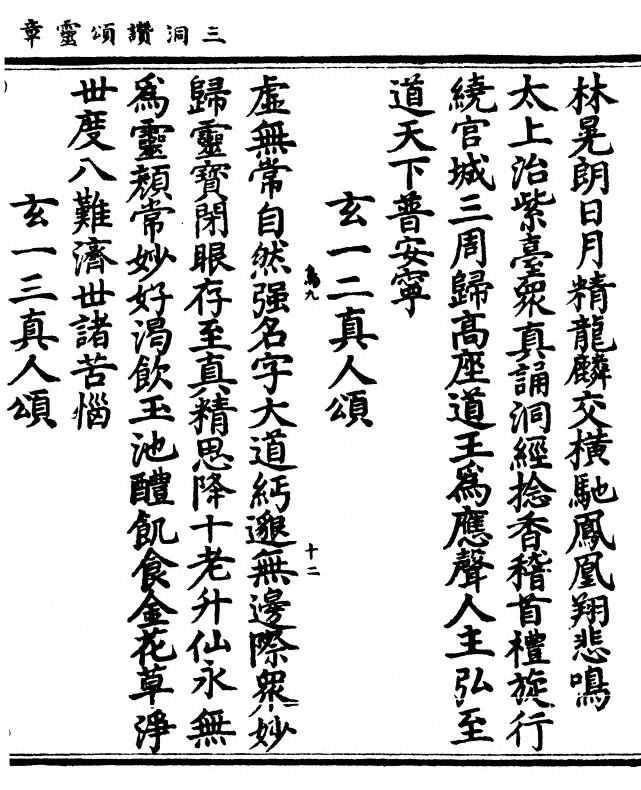 三洞讚頌靈章
林晃朗日月精龍麟交橫馳鳳凰翔悲鳴
太上治紫臺眾真誦洞經捻香稽首禮旋行
繞宮城三周歸高座道王為應聲人主弘至
道天下普安寧
玄一二真人頌
為九
十二
虛無常自然强名字大道紆邈無邊際眾妙
歸靈寶閉眼存至真精思降十老升仙永無
為靈顏常妙好渴飲玉池醴飢食金花草淨
世度八難濟世諸苦惱
玄一三真人頌